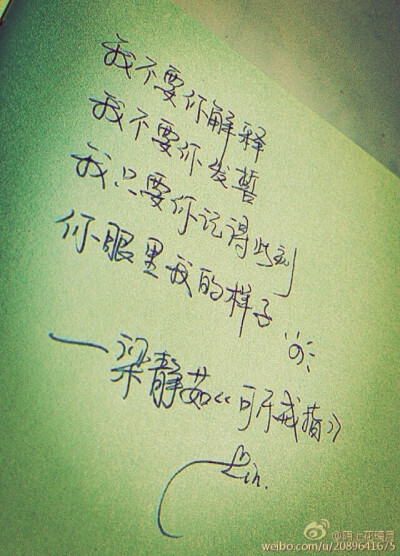 我不要你解释
我不要你发誓
我只要你记得此刻
你眼里我的样子
——梁静茹《可乐戒指》
Lin.
weibo.com/u/2089641675